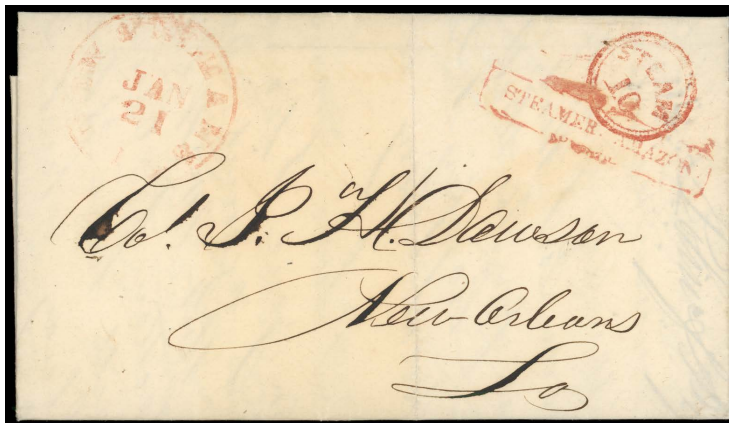 NEW ORLEANS
JAN
21
STEAM
10
STEAMER AMAZON
Col. J. H. Dawson
New Orleans
La